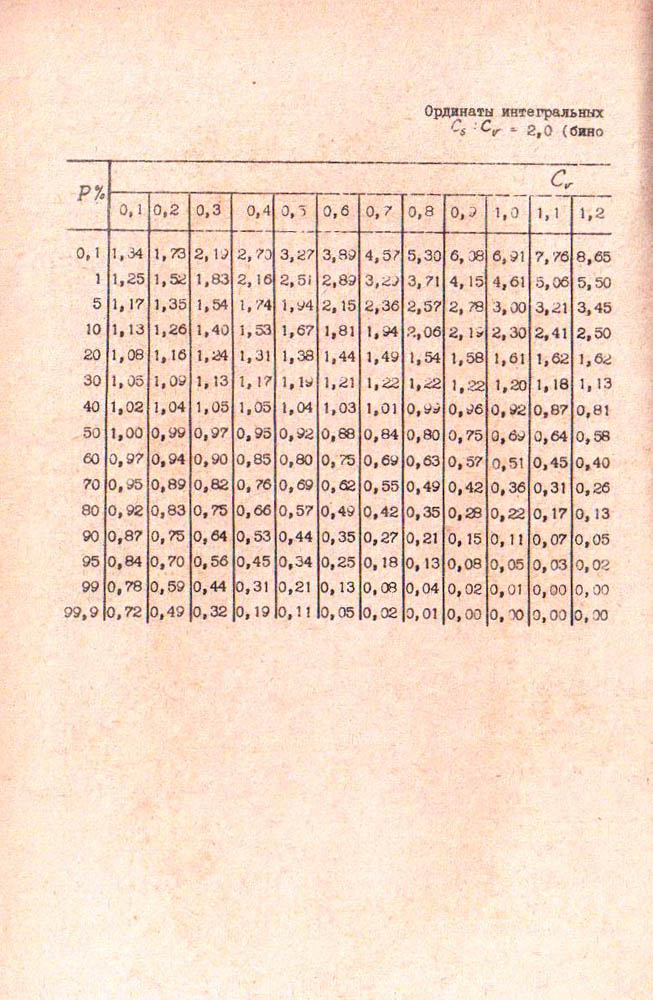 Ординаты интегральных
Cs : Cv = 2,0 (бино
P% Cv
0,1 0,2 0,3 0,4 0,5 0,6 0,7 0,8 0,9 1,0 1,1 1,2
0,1 1,34 1,73 2,19 2,70 3,27 3,89 4,57 5,30 6,08 6,91 7,76 8,65
1 1,25 1,52 1,83 2,16 2,51 2,89 3,29 3,71 4,15 4,61 5,06 5,50
5 1,17 1,35 1,54 1,74 1,94 2,15 2,36 2,57 2,78 3,00 3,21 3,45
10 1,13 1,26 1,40 1,53 1,67 1,81 1,94 2,06 2,19 2,30 2,41 2,50
20 1,08 1,16 1,24 1,31 1,38 1,44 1,49 1,54 1,58 1,61 1,62 1,62
30 1,05 1,09 1,13 1,17 1,19 1,21 1,22 1,22 1,22 1,20 1,18 1,13
40 1,02 1,04 1,05 1,05 1,04 1,03 1,01 0,99 0,96 0,92 0,87 0,81
50 1,00 0,99 0,97 0,95 0,92 0,88 0,84 0,80 0,75 0,69 0,64 0,58
60 0,97 0,94 0,90 0,85 0,80 0,75 0,69 0,63 0,57 0,51 0,45 0,40
70 0,95 0,89 0,82 0,76 0,69 0,62 0,55 0,49 0,42 0,36 0,31 0,26
80 0,92 0,83 0,75 0,66 0,57 0,49 0,42 0,35 0,28 0,22 0,17 0,13
90 0,87 0,75 0,64 0,53 0,44 0,35 0,27 0,21 0,15 0,11 0,07 0,05
95 0,84 0,70 0,56 0,45 0,34 0,25 0,18 0,13 0,08 0,05 0,03 0,02
99 0,78 0,59 0,44 0,31 0,21 0,13 0,08 0,04 0,02 0,01 0,00 0,00
99,9 0,72 0,49 0,32 0,19 0,11 0,05 0,02 0,01 0,00 0,00 0,00 0,00